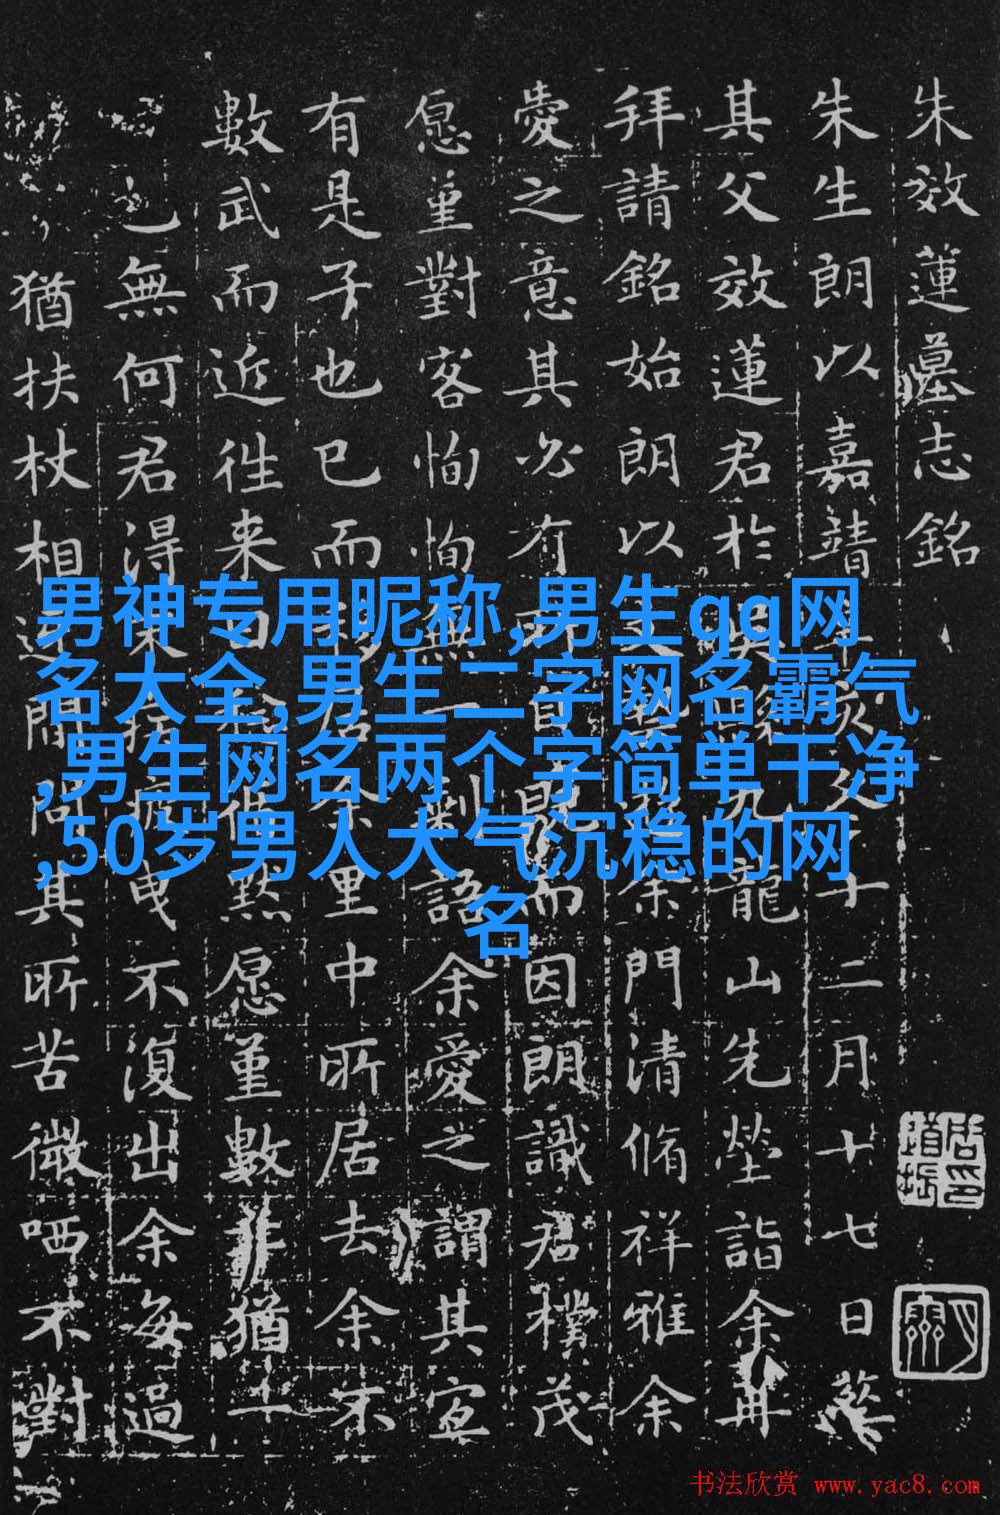 朱效蓮墓志銘
朱生朗以嘉靖 十二月十七日葬
其父效蓮君於 九龍山先塋詣余再
拜請銘始朗以文 余門清脩祥雅余
愛之意其必有所自 而因朗識君樸茂
愿重對客恂恂無一劇語余愛之謂其宜
有是子也已而移居余里中所居去余不
數武而近徃来日 點愿重數 猶一
也無何君得末疾疲曳不復出余每過
猶扶杖相迎 問其所苦微哂不對
男神专用昵称,男生qq网
名大全,男生二字网名霸气
,男生网名两个字简单干净
,50岁男人大气沉稳的网
名
书法欣赏 www.yac8.com